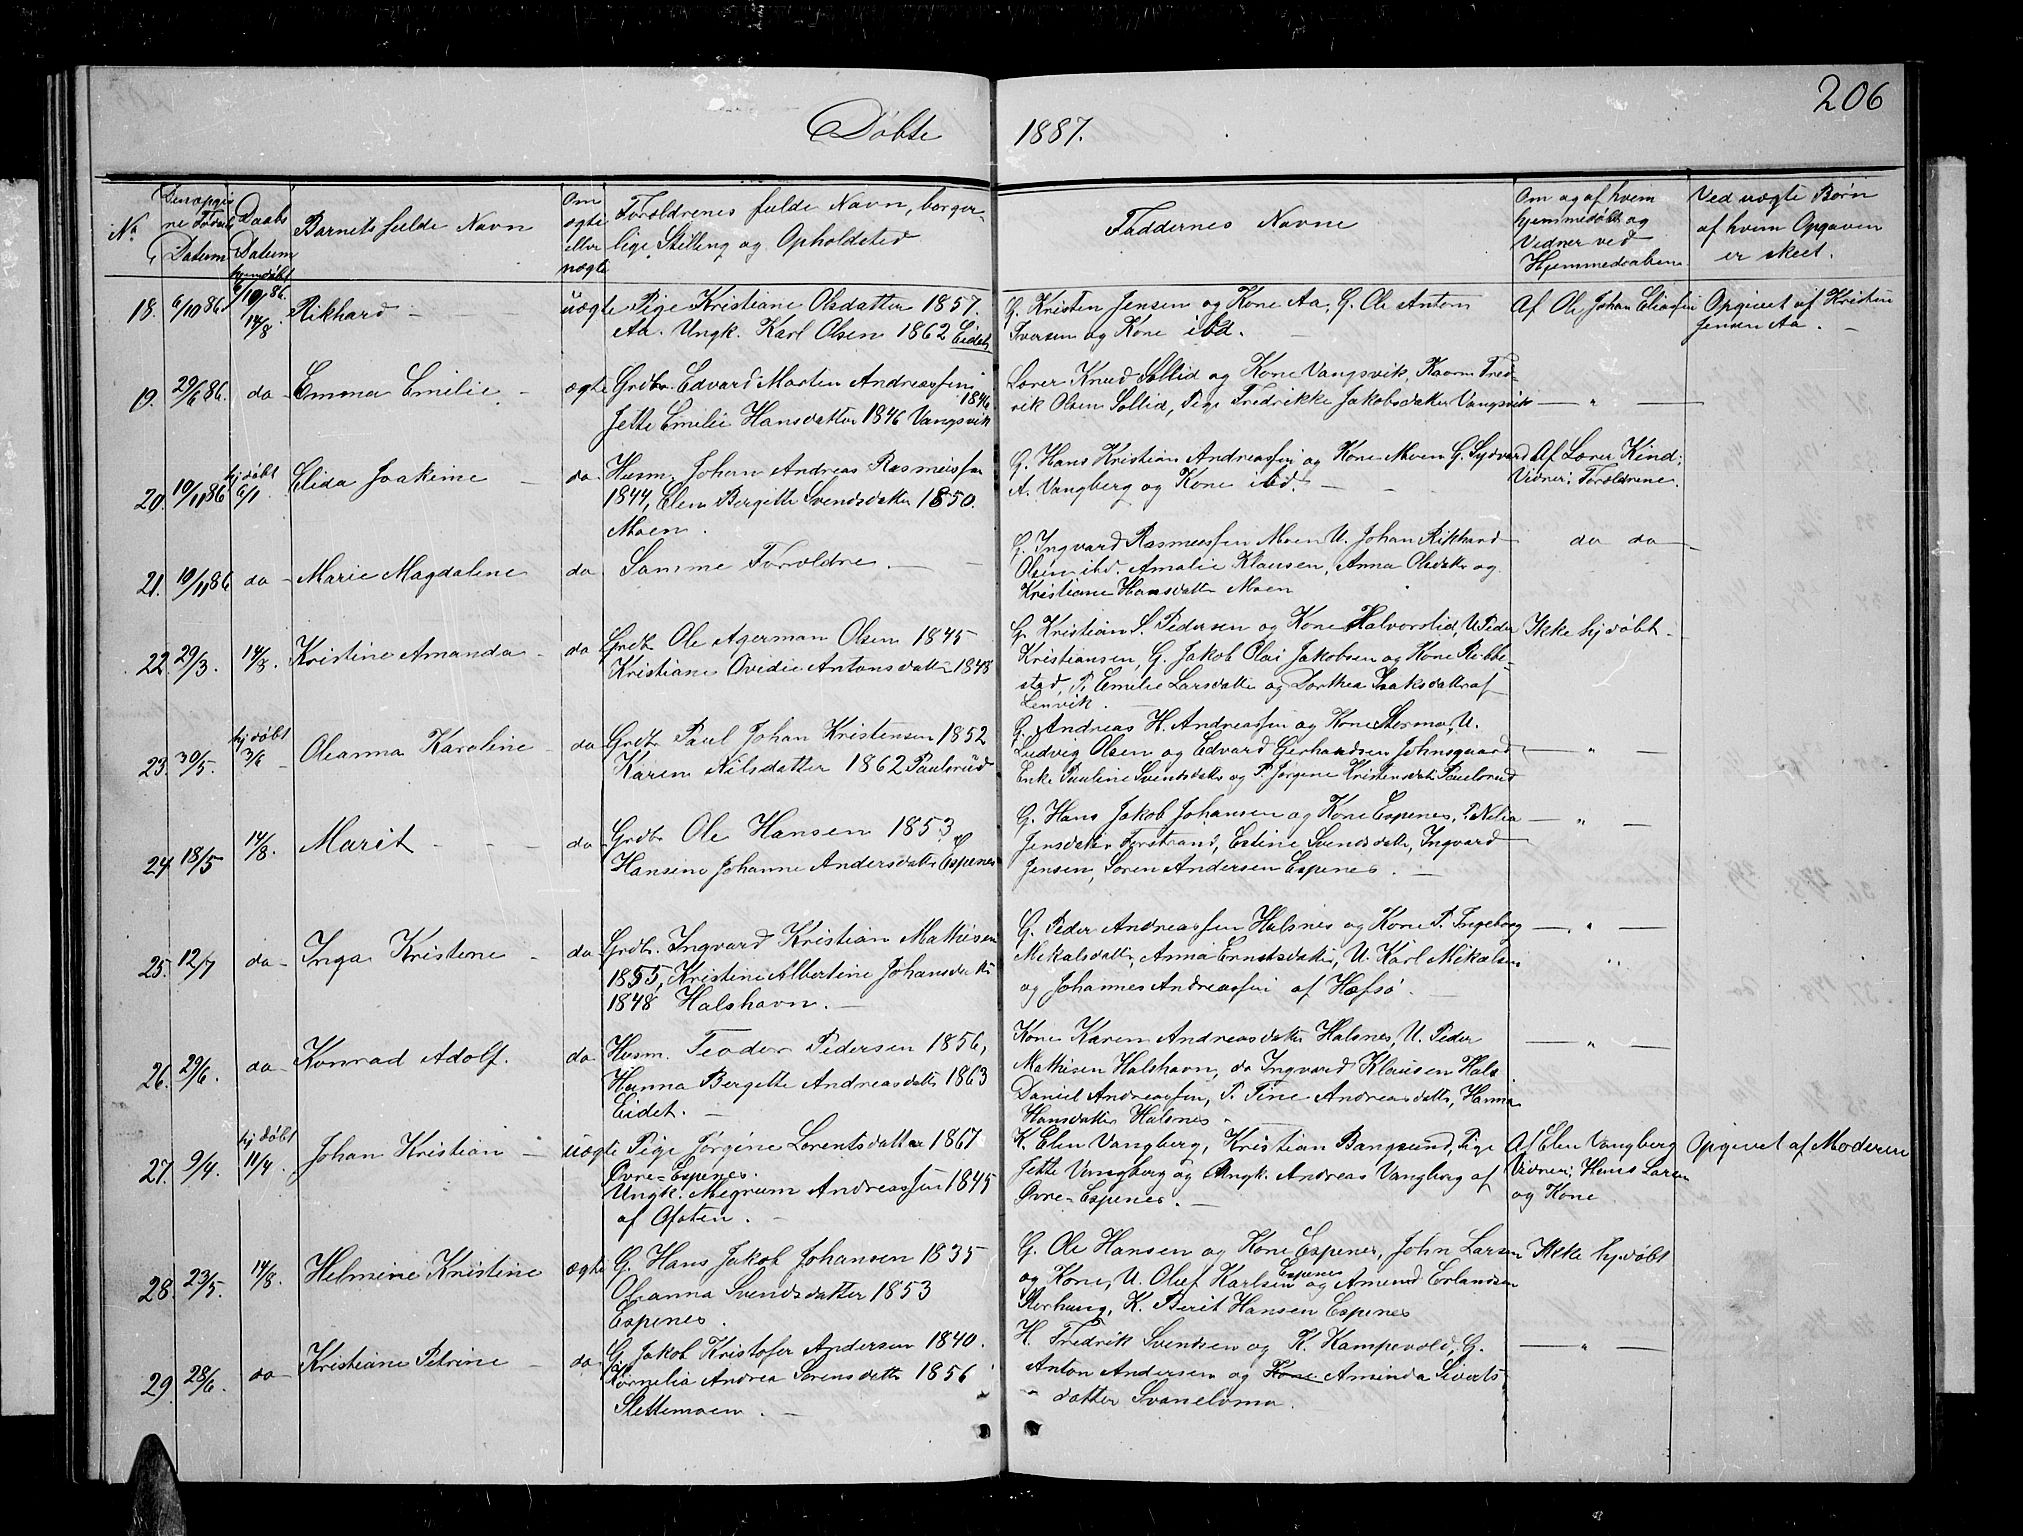 206
Døbte 1887.
No
Den opgivne Fødsels Datum
Daabs Datum
Barnets fulde Navn
Om ægte eller uægte
Forældrenes fulde Navn, borgerlige Stilling og Opholdsted
Faddernes Navne
Om og af hvem hjemmedøbt og Vidner ved Hjemmedaaben
Ved uægte Børn af hvem Opgaven er skeet.
18. 6/10 86 hjemdøbt 6/10 86. 14/8. Rikhard uægte Pige Kristiane Olsdatter 1857.
Aa. Ungk. Karl Olsen 1862 Eidet
G. Kristen Jensen og Kone Aa, G. Ole Antom
Iversen og Kone ibd.
Af Ole Johan Eliassen
Opgivet af Kristen
Jensen Aa.
19. 29/6 86. do Emma Emilie ægte Grdbr. Edvard Martin Andreassen 1846
Jette Emilie Hansdatter 1846 Vangsvik
Lærer Knud Sollid og Kone Vangsvik, Kaarm Fred-
rik Olsen Sollid, Pige Fredrikke Jakobsdatter Vangsvik
— " —
20. 10/11 86 hj døbt 6/1. Elida Joakime do Husm. Johan Andreas Rasmussen
1844, Elen Bergitte Svendsdatter 1850.
Moen.
G. Hans Kristian Andreassen og Kone Moen G. Sydvard
A. Vangberg og Kone ibd.
Af Lærer Kind;
Vidner; Forældrene.
21. 10/11 86 do Marie Magdaline do Samme Forældre.
G. Ingvard Rasmussen Moen U. Johan Rikhard
Olsen ibd. Amalie Klausen, Anna Olsdatter og
Kristiane Hansdatter Moen
do do
22. 29/3. 14/8. Kristine Amanda do Grdb. Ole Agerman Olsen 1845
Kristiane Ovidie Antonsdatter 1848
G. Kristian S. Pedersen og Kone Halvorslid, U. Peder
Kristiansen, G. Jakob Olai Jakobsen og Kone Ribbe-
stad, P. Emilie Larsdatter og Dorthea Isaksdatter af
Lenvik.
Ikke hj døbt.
23. 30/5. hj døbt 3/6 Oleanna Karoline do Grdbr Paul Johan Kristensen 1852
Karen Nilsdatter 1862 Paulsrud
G. Andreas H. Andreassen og Kone Stormo, U.
Ludvig Olsen og Edvard Gerhardsen Johnsgaard
Enke Pauline Svendsdatter og P. Jørgine Kristensdatter Paulsrud
— " —
24 18/5 14/8. Marit do Grdbr Ole Hansen 1853
Hansine Johanne Andersdatter Espenes
G. Hans Jakob Johansen og Kone Espenes, P. Nelia
Jensdatter Forstrand, Estine Svendsdatter, Ingvard
Jensen, Soren Andersen Espenes.
— " —
25. 12/7 do Inga Kristine do Grdbr. Ingvard Kristian Mathisen
1855, Kristine Albertine Johansdatter
1848 Halshavn.
G. Peder Andreassen Halsnes og Kone P. Ingeborg
Mekalsdatter, Anna Ernstsdatter, U. Karl Mikalsen
og Johannes Andreassen af Hofsø.
— " —
26. 29/6. do Konrad Adolf. do Husm. Teodor Pedersen 1856,
Hanna Bergitte Andreasdatter 1863
Eidet.
Kone Karen Andreasdatter Halsnes, U. Peder
Mathisen Halshavn, do Ingvard Klausen Hals
Daniel Andreassen, P. Tine Andreasdatter, Hanna
Hansdatter Halsnes
— " —
27. 9/4. hj døbt 11/4. Johan Kristian uægte Pige Jørgine Lorentsdatter 1867
Øvre-Espenes.
Ungk. Megrum Andreassen 1845
af Ofoten.
K. Elen Vangberg, Kristian Bangsund, Pige
Jette Vangberg og Ungk. Andreas Vangberg af
Øvre-Espenes.
Af Elen Vangberg
Vidner; Hans Larsen
og Kone
Opgivet af Moderen
28. 23/5. 14/8. Helmine Kristine ægte G. Hans Jakob Johansen 1835
Oleanna Svendsdatter 1853
Espenes.
G. Ole Hansen og Kone Espenes, John Larsen
og Kone, U. Oluf Karlsen Espenes og Amund Erlandsen
Storhaug, K. Berit Hansen Espenes
Ikke hj døbt
29. 28/6. do Kristiane Petrine do G. Jakob Kristofer Andersen 1840.
og Kornelia Andrea Sorensdatter 1856
Slettemoen.
H. Fredrik Svendsen og K. Kampevold, G.
Anton Andersen og Kone Aminda Siverts-
datter Svanelvmo.
— " —